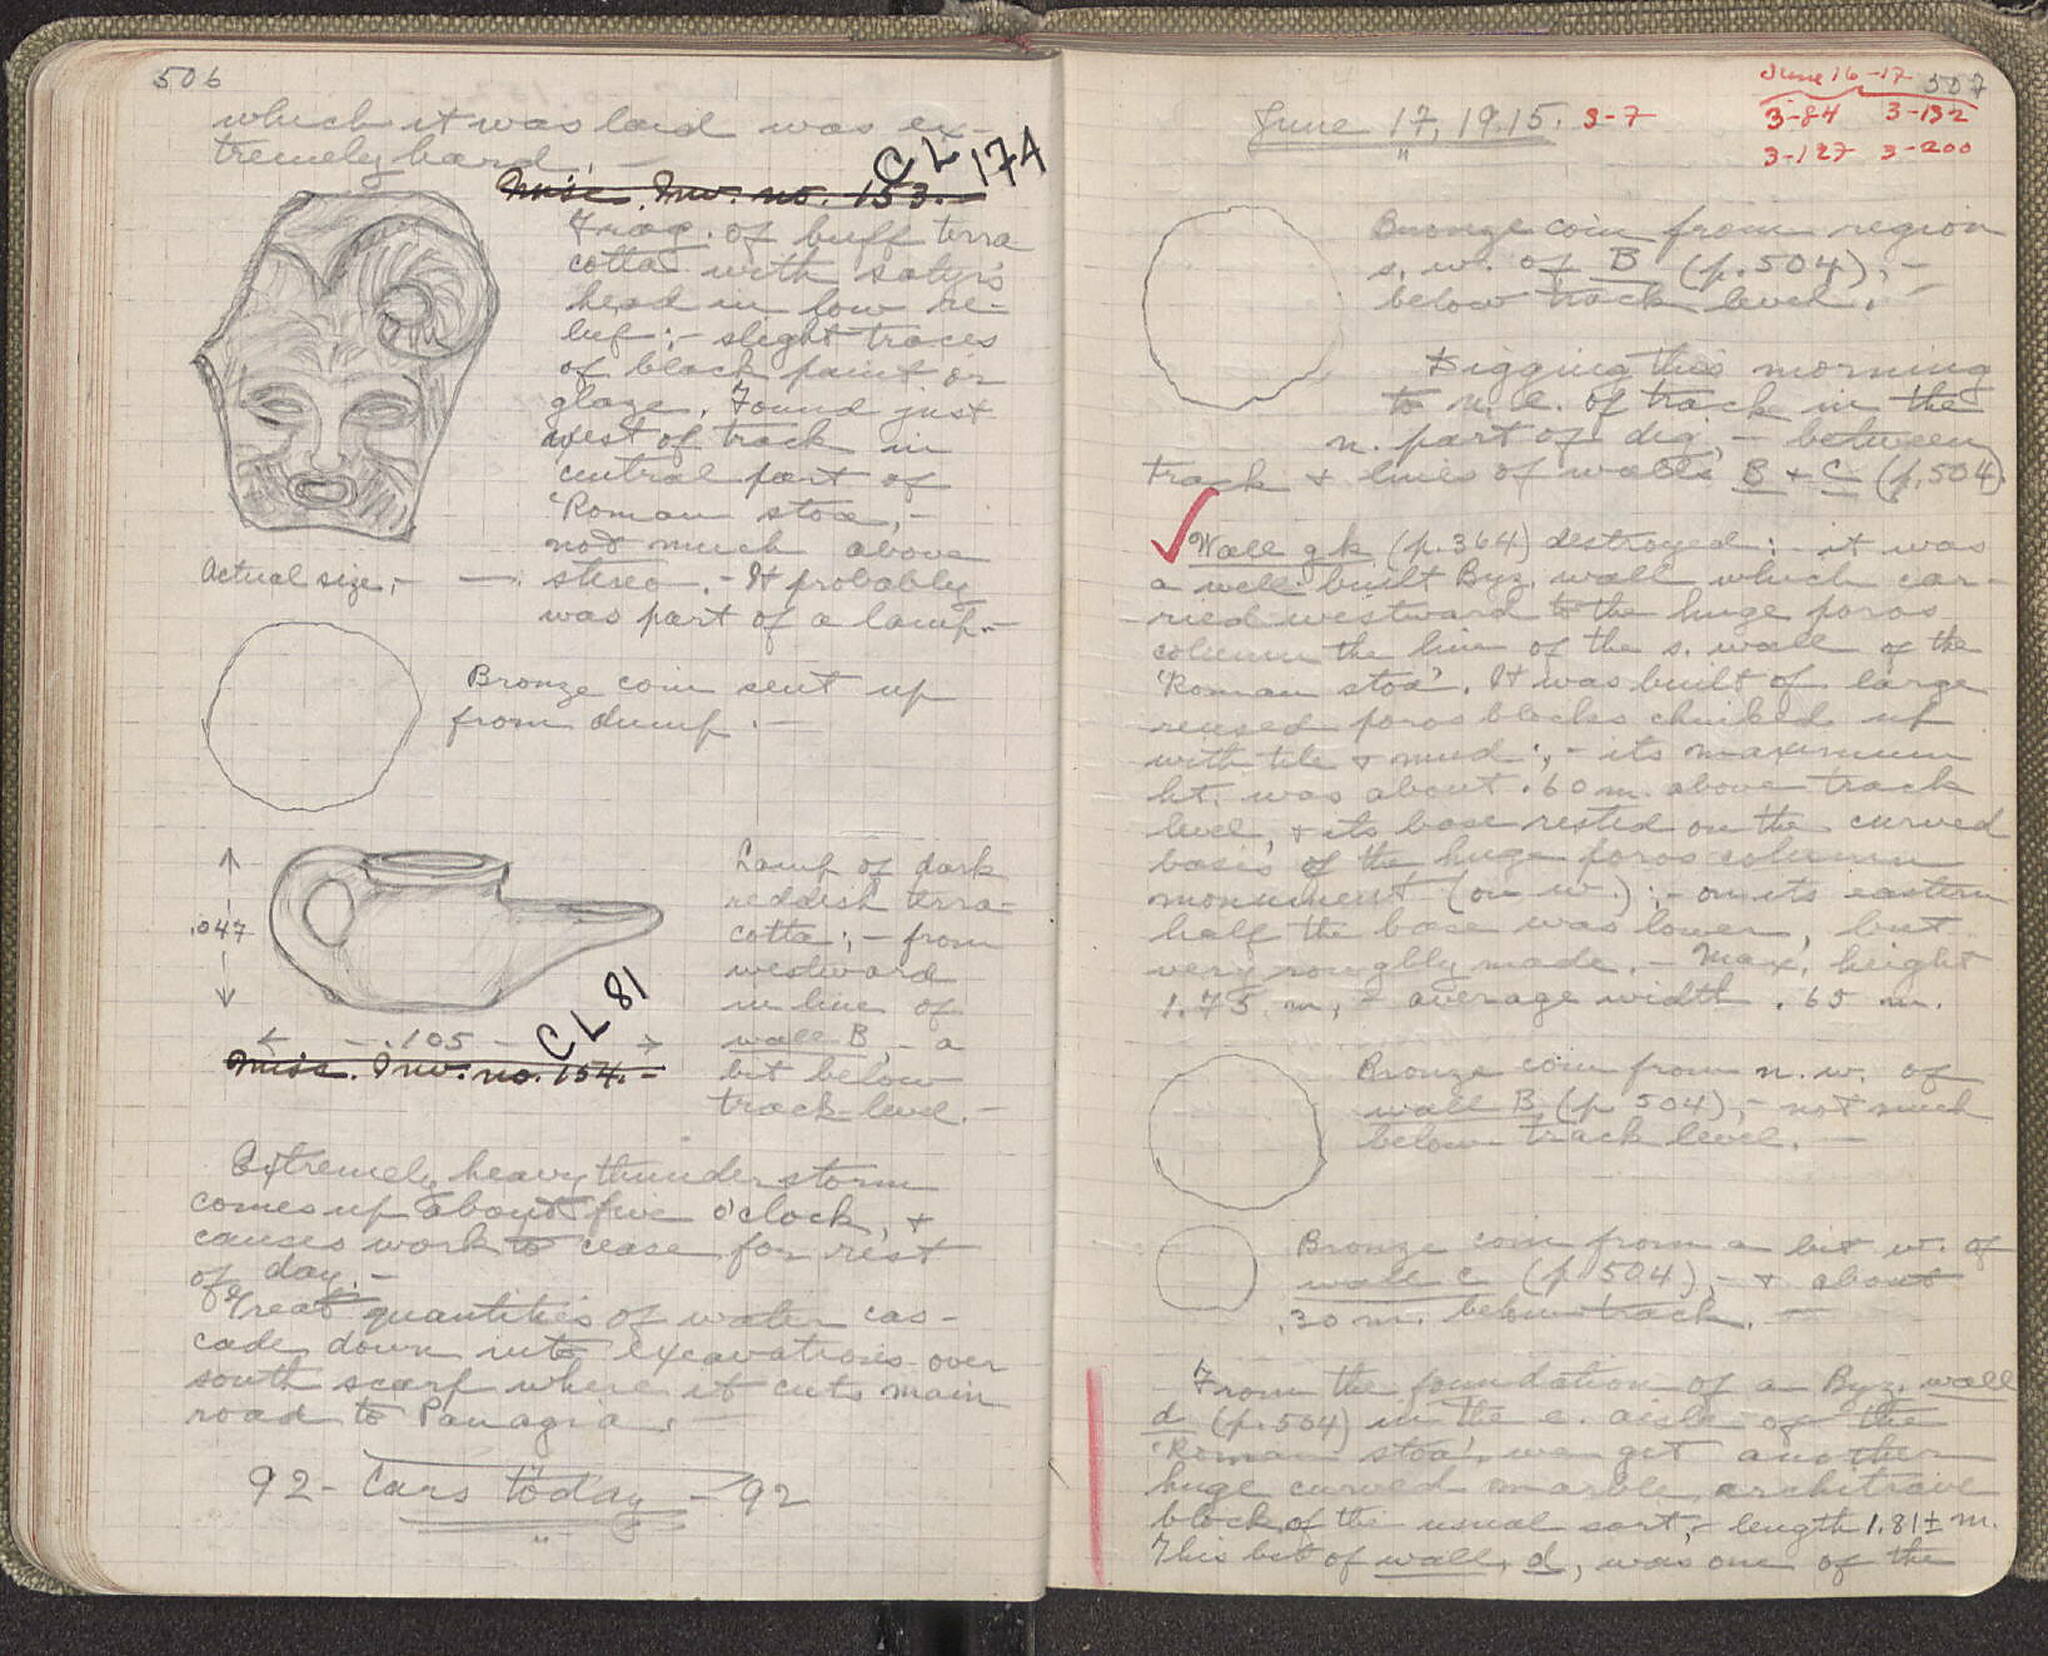 506
which it was laid was ex-
tremely hard. -
CL 174
Misc. Inv. no. 153. -
Frag. of buff terra
cotta with satyr's
head in low re-
lief ; - slight traces
of black paint or
glaze. Found just
west of track in
central part of
'Roman stoa, -
not much above
stereo. - It probably
was part of a lamp. -
Actual size, -
Bronze coin sent up
from dump. -
Lamp of dark
reddish terra-
cotta ; - from
westward
in line of
wall B, - a
bit below
track level. -
.047
.105
CL 81
Misc. Inv. no. 154. -
Extremely heavy thunder storm
comes up about five o'clock, +
causes work to cease for rest
of day. -
Great quantities of water cas-
cade down into excavations over
south scarp where it cuts main
road to Panagia. -
92 - Cars today - 92
June 16-17 507
3-84 3-132
3-127 3-200
June 17, 1915. 3-7
Bronze coin from region
s. w. of B (p. 504), -
below track level. -
Digging this morning
to n. e. of track in the
n. part of dig, - between
track + lines of walls B + C (p. 504).
Wall gk (p. 364) destroyed : - it was
a well built Byz. wall which car-
ried westward to the huge poros
column the line of the s. wall of the
'Roman stoa'. It was built of large
reused poros blocks chinked up
with tile + mud ; - its maximum
ht. was about .60 m. above track
level, + its base rested on the curved
basis of the huge poros column
monument (on w.) ; - on its eastern
half the base was lower, but
very roughly made. - Max. height
1.75 m, - average width .65 m.
Bronze coin from n. w. of
wall B (p 504), - not much
below track level. -
Bronze coin from a bit w. of
wall C (p 504), - + about
.30 m. below track. -
From the foundation of a Byz. wall
d (p. 504) in the e. aisle of the
'Roman stoa', we get another
huge curved marble architrave
block of the usual sort, - length 1.81± m.
This bit of wall, d, was one of the